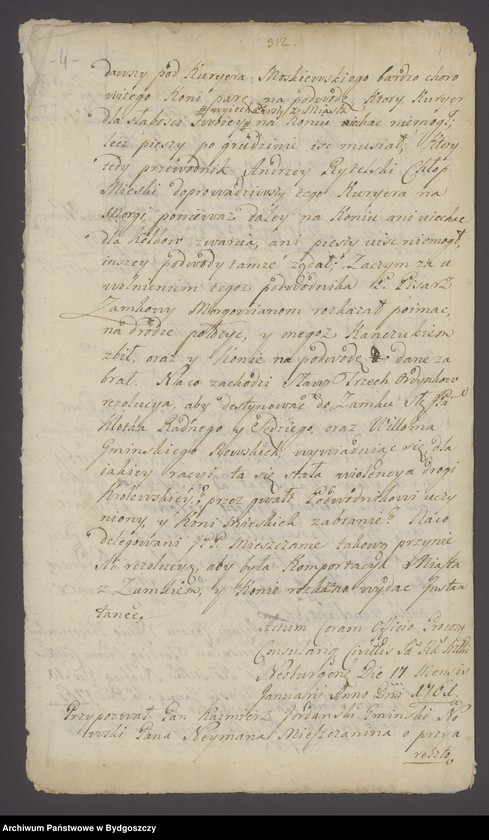 -4-
312.
dawszy pod Kuryera Moskiewskiego bardzo choro
witego Koni parę na podwodę Ktory Kuryer
wyiechawszy z Miasta
dla słabości swoiey na Koniu iechać niemogł,
lecz pieszy po grudzinie iść musiał; Ktory
tedy przewodnik Andrzey Rytelski Chłop
Mieski doprowadziwszy tego Kuryera na
Morgi, poniewaz daley na Koniu ani iechać
dla zwarcia, ani pieszy iść niemogł,
inszey podwody tamże żądał; Zaczym za u
wolnieniem tegoż podwodnika Pisarz
Zamkowy Morgownianom rozkazał poimac,
na drodze połozyc, y onegoz Kanczukiem
zbił, oraz y Konie na podwodę dane za
brał. Naco zachodzi Sławy Trzech Ordynkow
rezolucya, aby destynować do Zamku
Radnego y Sędziego, oraz Willoma
Gminskiego Nowskich, wywiaduiąc się, dla
iakiey racyi ta się stała wiolencya drogi
Krolewskiey, przez gwałt Podwodnikowi uczy
niony, y Koni Mieskich zabranie? Naco
delegowani Mieszczanie takową przynie
śli rezolucyą, aby była Komportacya Miasta
z Zamkiem, y Konie rozkazano wydać Instan
tanee.
Actum Coram Officio Procon
Consulari Civitis
Neoburgens Die 17 Mensis
Januarii Anno Dni 1761.
Przypozwał Pan Kazimierz Jordanski Gminski No
wski Pana Neymana Mieszczanina o przya
resztо
Archiwum Państwowe w Bydgoszczy